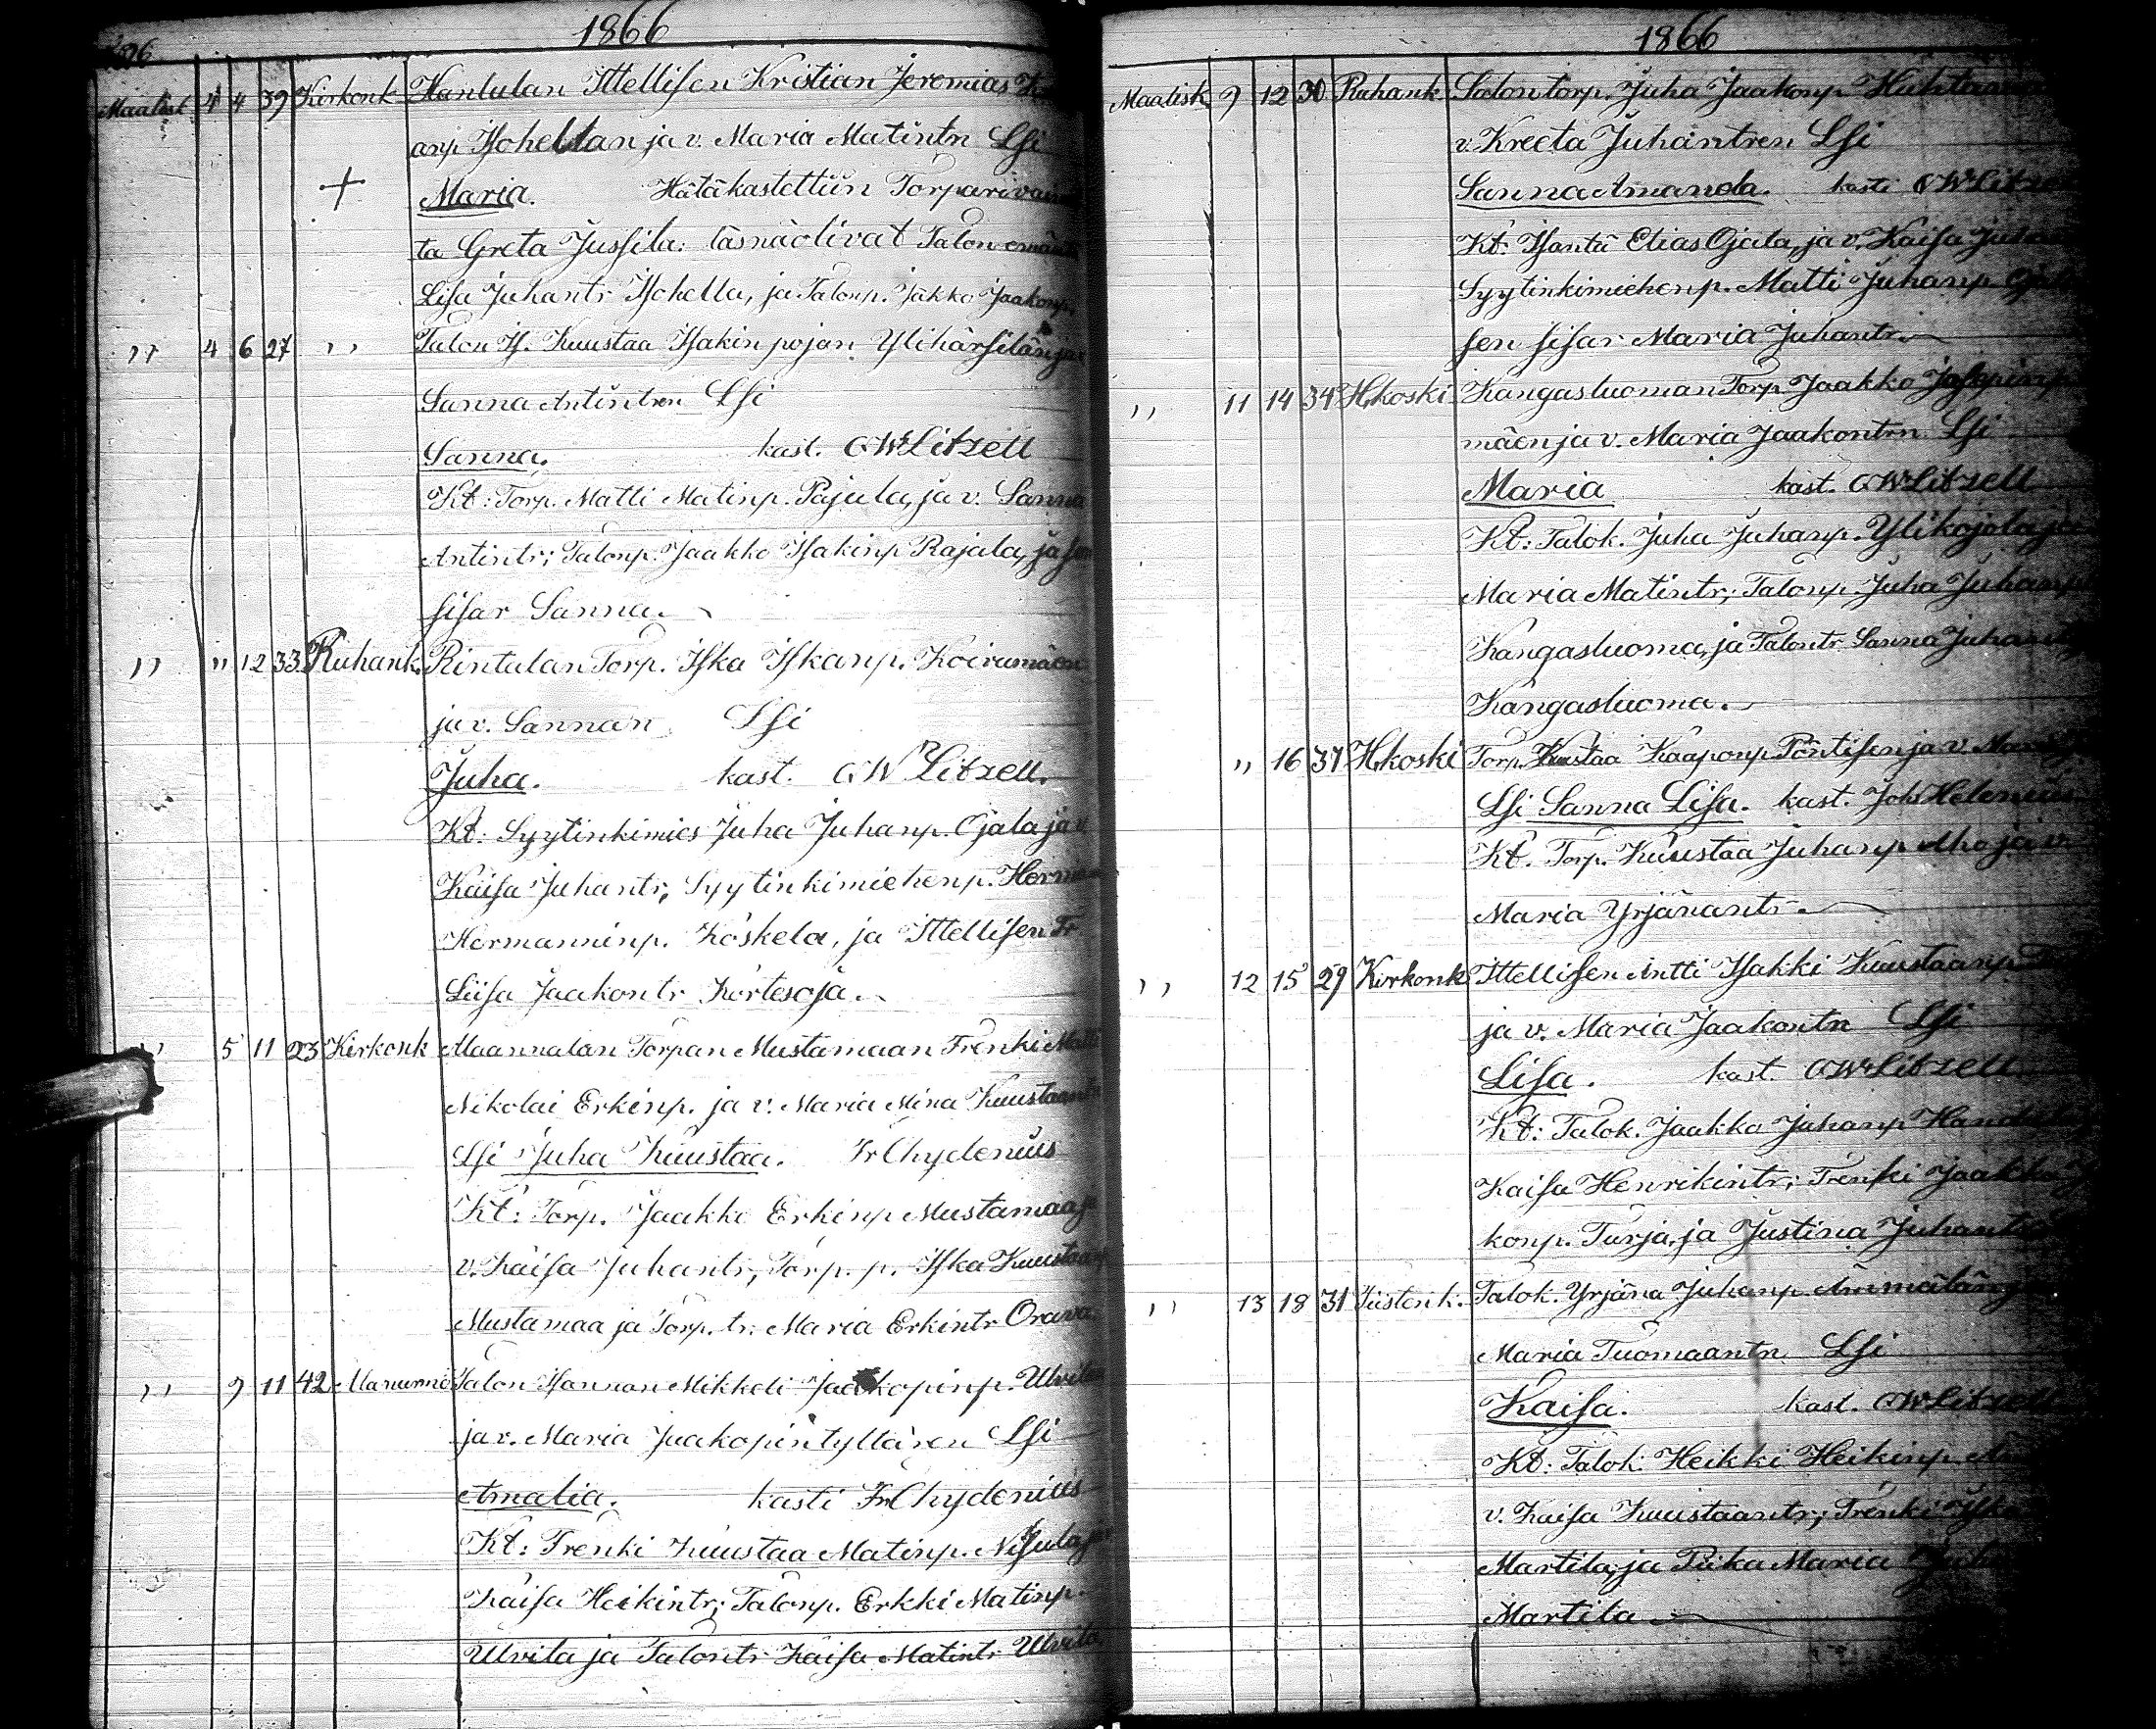 1866
Maalisk 4 4 39 Kirkonk Hantulan Ittellisen Kristian Jeremias
anp Isohellan ja v. Maria Matintn Lsi
+ Maria. Hätäkastettiin Torparivaim
ta Greta Jussila: läsnäolivat Talon emän
Lisa Juhantr Isohella, ja Talonp. Jakko Jaakonp.
" 4 6 27 " Talon Is. Kuustaa Isakin pojan Ylihärsilän ja v
Sanna Antintren Lsi
Sanna. kast. CWLitzell
Kt: Torp. Matti Matinp. Pajula, ja v. Sanna
Antintr; Talonp. Jaakko Isakinp Rajala, ja sen
sisar Sanna.
" " 12 33 Ruhank. Rintalan Torp. Iska Iskanp. Koirumäen
ja v. Sannan Lsi
Juha. kast. CWLitzell.
Kt: Syytinkimies Juha Juhanp. Ojala ja v
Kaisa Juhantr, Syytinkimiehenp. Herman
Hermanninp. Koskela, ja Ittellisen Tr
Liisa Jaakontr Kortesoja.
" 5 11 23 Kirkonk Maannalan Torpan Mustamaan Trenki Matti
Nikolai Erkinp. ja v. Maria Mina Kuustaantr
Lsi Juha Kuustaa. Fr Chydenius
Kt: Torp. Jaakko Erkinp Mustamaa ja
v. Kaisa Juhantr, Torp. p. Iska Kuustaanp
Mustamaa ja Torp. tr. Maria Erkintr Orava.
" 9 11 42 Talon Isannan Mikkeli Jaakopinp. Ulvilan
ja v. Maria Jaakopintyttären Lsi
Amalia. kasti Fr Chydenius
Kt: Trenki Kuustaa Matinp. Nisula ja
Kaisa Heikintr; Talonp. Erkki Matinp.
Ulvila ja Talontr Kaisa Matintr Ulvila.
1866
Maalisk 9 12 30 Ruhank. Salon torp. Juha Jaakonp
v. Kreeta Juhantren Lsi
Sanna Amanda. kasti CWLitzell
Kt: Isäntä Elias Ojala, ja v. Kaisa Juhan
Syytinkimiehenp. Matti Juhanp
sen sisar Maria Juhantr.
" 11 14 34 H,koski Kangasluoman Torp Jaakko
mäen ja v. Maria Jaakontrn Lsi
Maria kast. CWLitzell
Kt: Talok. Juha Juhanp. Ylikojola ja
Maria Matintr; Talonp. Juha Juhanp
Kangasluoma, ja Talontr Sanna Juhantr
Kangasluoma.
" 16 37 H,koski Torp. Kuustaa Kaaponp. Pöntisen ja v. Maria
Lsi Sanna Lisa. kast. Joh Helenius
Kt. Torp. Kuustaa Juhanp Aho ja v.
Maria Yrjänäntr.
" 12 15 29 Kirkonk Ittellisen Antti Isakki Kuustaanp
ja v. Maria Jaakontn Lsi
Lisa. kast. CWLitzell
Kt: Talok. Jaakko Juhanp
Kaisa Henrikintr; Trenki Jaakko
konp. Turja, ja Justina Juhantr
" 13 18 31 Talok. Yrjäna Juhanp. Ämmälän ja
Maria Tuomaantn Lsi
Kaisa. kast. CWLitzell
Kt: Talok. Heikki Heikinp.
v. Kaisa Kuustaantr; Trenki Iska
Martila, ja Piika Maria Juh
Martila